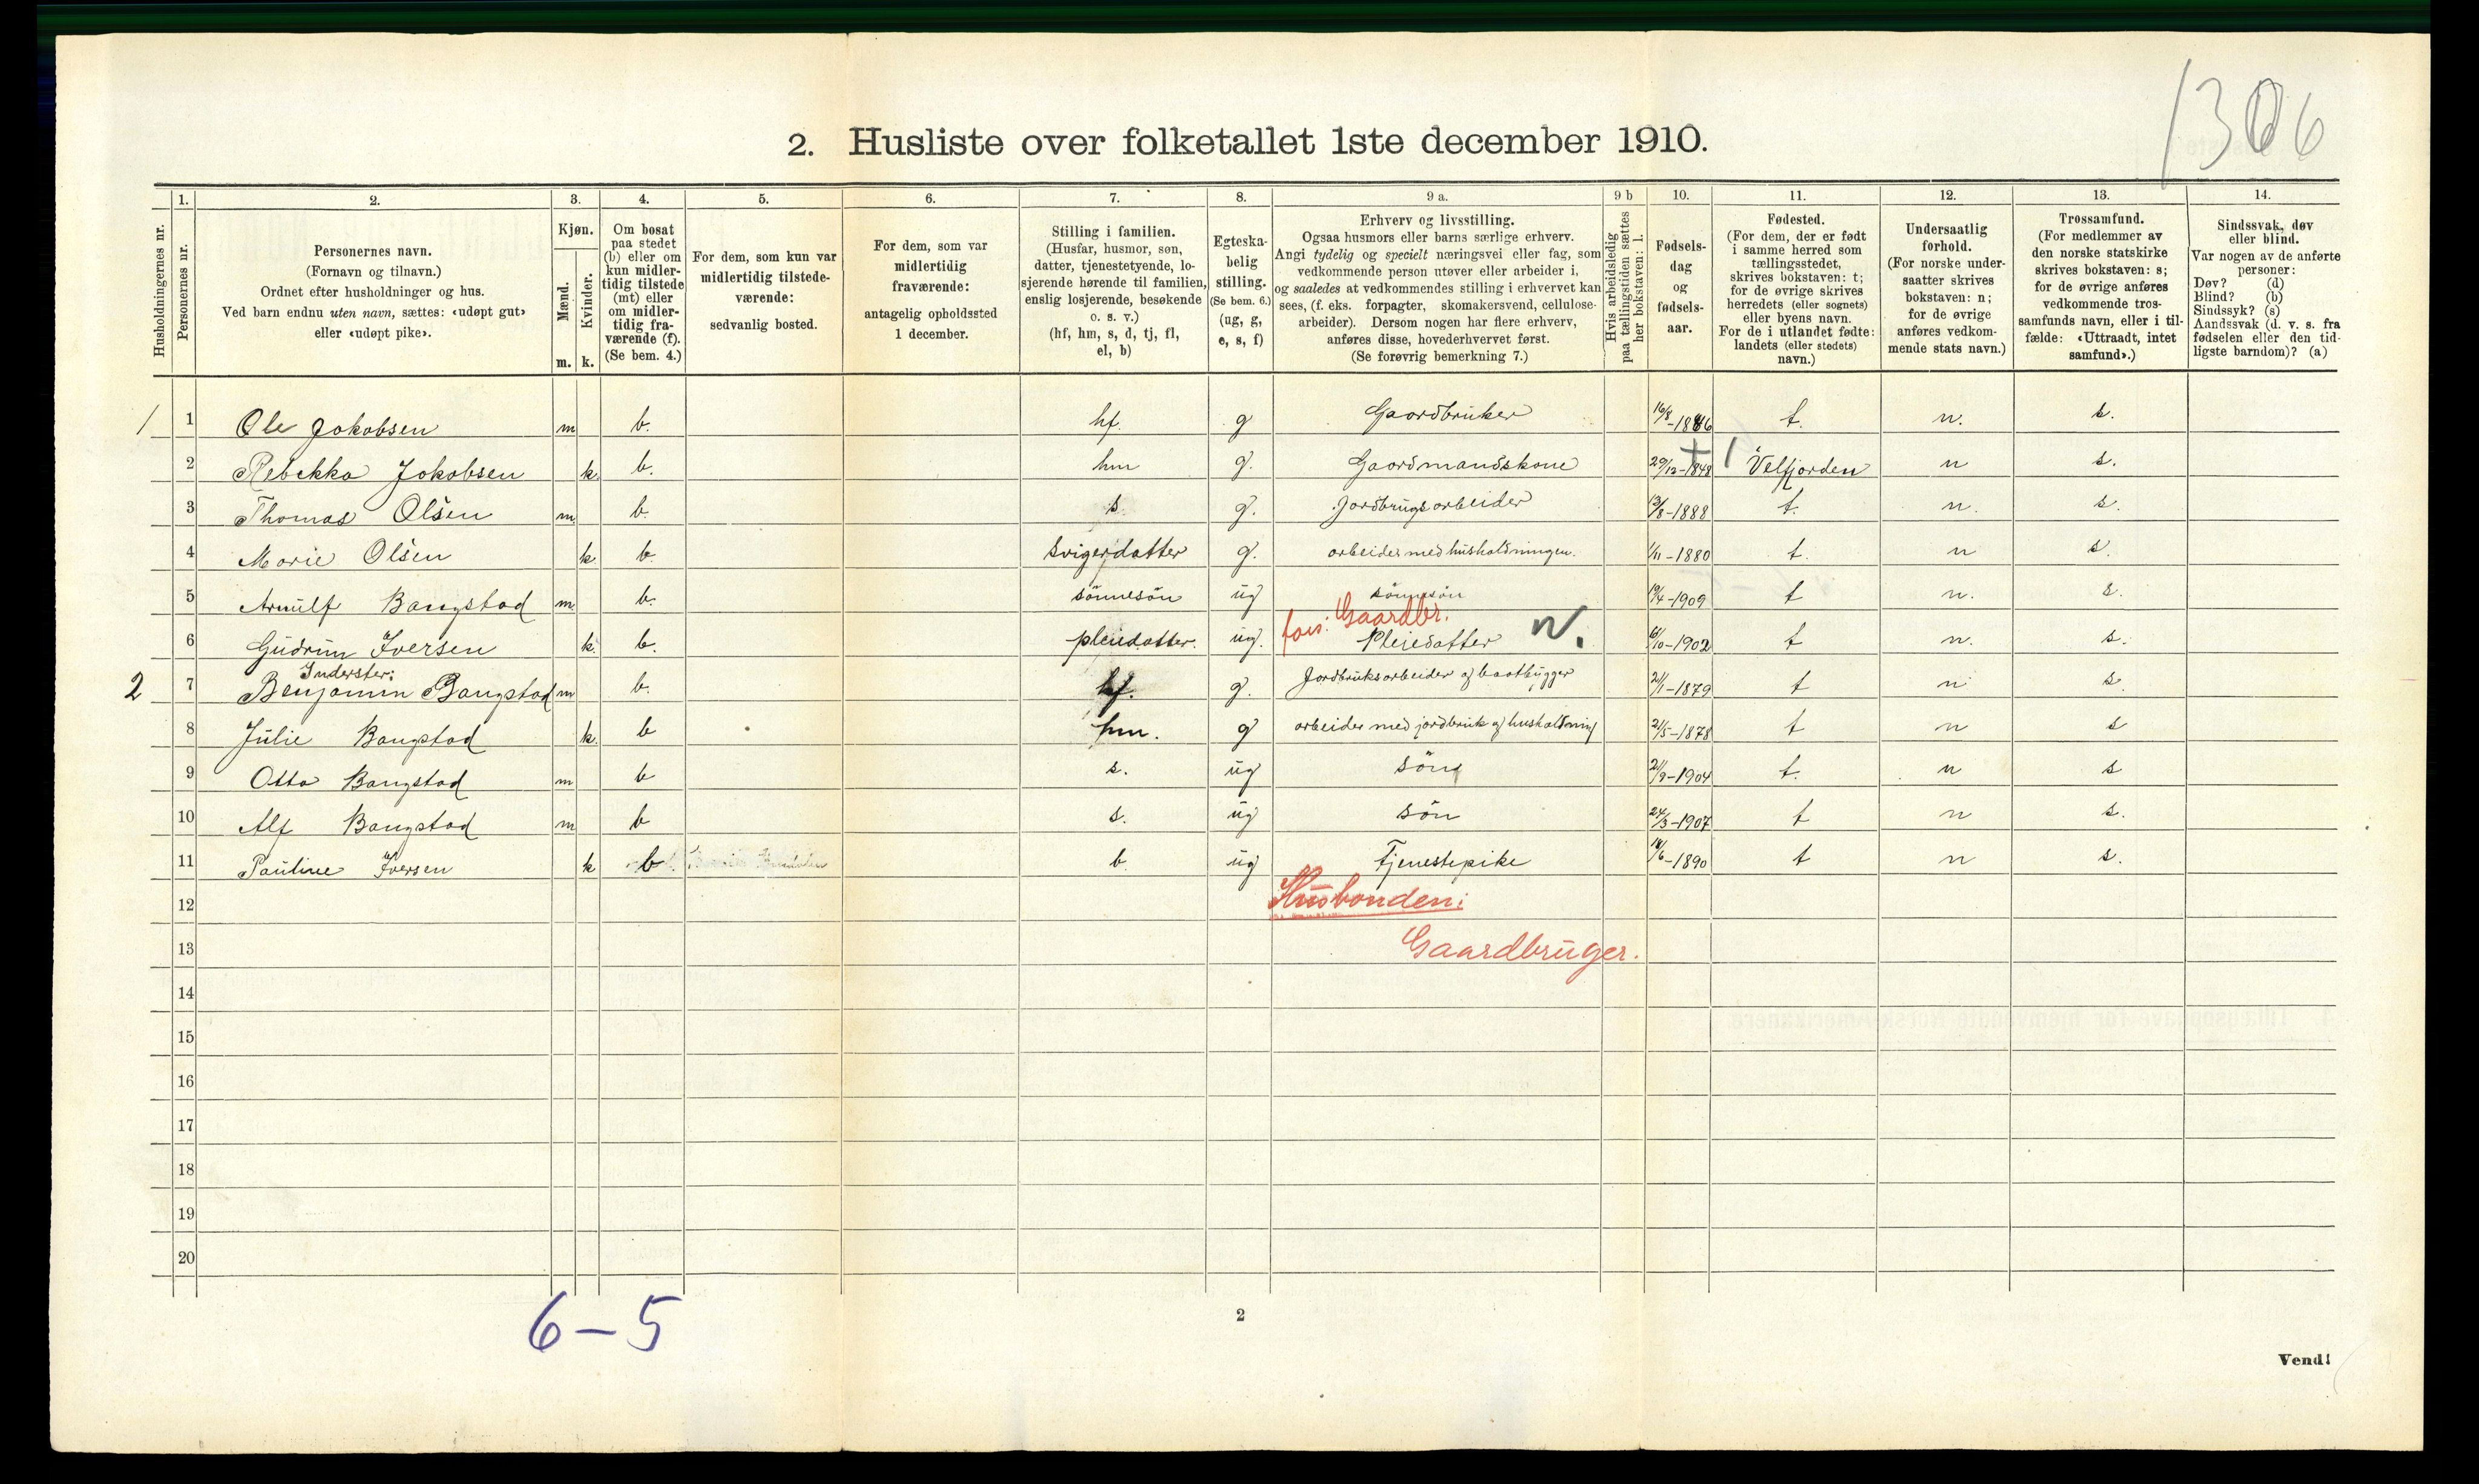 1306
2. Husliste over folketallet 1ste december 1910.
Husholdningernes nr.
1. Personernes nr.
2. Personernes navn.
(Fornavn og tilnavn.)
Ordnet efter husholdninger og hus.
Ved barn endnu uten navn, sættes: «udøpt gut»
eller «udøpt pike».
3. Kjøn.
Mænd. m.
Kvinder. k.
4. Om bosat
paa stedet
(b) eller om
kun midler-
tidig tilstede
(mt) eller
om midler-
tidig fra-
værende (f).
(Se bem. 4.)
5. For dem, som kun var
midlertidig tilstede-
værende:
sedvanlig bosted.
6. For dem, som var
midlertidig
fraværende:
antagelig opholdssted
1 december.
7. Stilling i familien.
(Husfar, husmor, søn,
datter, tjenestetyende, lo-
sjerende hørende til familien,
enslig losjerende, besøkende
o. s. v.)
(hf, hm, s, d, tj, fl,
el, b)
8. Egteska-
belig
stilling.
(Se bem. 6.)
(ug, g,
e, s, f)
9 a. Erhverv og livsstilling.
Ogsaa husmors eller barns særlige erhverv.
Angi tydelig og specielt næringsvei eller fag, som
vedkommende person utøver eller arbeider i,
og saaledes at vedkommendes stilling i erhvervet kan
sees, (f. eks. forpagter, skomakersvend, cellulose-
arbeider). Dersom nogen har flere erhverv,
anføres disse, hovederhvervet først.
(Se forøvrig bemerkning 7.)
9 b Hvis arbeidsledig
paa tællingstiden sættes
her bokstaven: l.
10. Fødsels-
dag
og
fødsels-
aar.
11. Fødested.
(For dem, der er født
i samme herred som
tællingsstedet,
skrives bokstaven: t;
for de øvrige skrives
herredets (eller sognets)
eller byens navn.
For de i utlandet fødte:
landets (eller stedets)
navn.)
12. Undersaatlig
forhold.
(For norske under-
saatter skrives
bokstaven: n;
for de øvrige
anføres vedkom-
mende stats navn.)
13. Trossamfund.
(For medlemmer av
den norske statskirke
skrives bokstaven: s;
for de øvrige anføres
vedkommende tros-
samfunds navn, eller i til-
fælde: «Uttraadt, intet
samfund».)
14. Sindssvak, døv
eller blind.
Var nogen av de anførte
personer:
Døv? (d)
Blind? (b)
Sindssyk? (s)
Aandssvak (d. v. s. fra
fødselen eller den tid-
ligste barndom)? (a)
1 1 Ole Jakobsen m b. hf. g Gaardbruker 16/8-1846 t. n. s.
2 Rebekka Jokobsen k. b. hm g. Gaardmandskone 29/12-1848 Velfjorden n s.
3 Thomas Olsen m b. s. g. Jordbrugsarbeider 13/8-1888 t. n. s.
4 Marie Olsen k b. svigerdatter g. arbeider med husholdningen. 1/11-1880 t. n s.
5 Arnulf Bangstad m b. sönnesön ug sönnesön 19/4-1909 t n. s.
fors: Gaardbr. N.
6 Gudrun Iversen k. b. pleiedatter. ug. Pleiedatter 6/10-1902 t n. s.
Inderster:
2 7 Benjamin Bangstad m b. hf. g. Jordbruksarbeider og baatbygger 21/1-1879 t n s
8 Julie Bangstad k. b hm. g arbeider med jordbruk og husholdning 21/5-1878 t n s
9 Otto Bangstad m b s. ug sön 21/9-1904 t. n s
10 Alf Bangstad m b s. ug sön 24/3-1907 t n s.
11 Pauline Iversen k b b ug Tjenestepike 18/6-1890 t n s.
12 Husbonden:
13 Gaardbruger.
14
15
16
17
18
19
20
6-5
2
Vend!